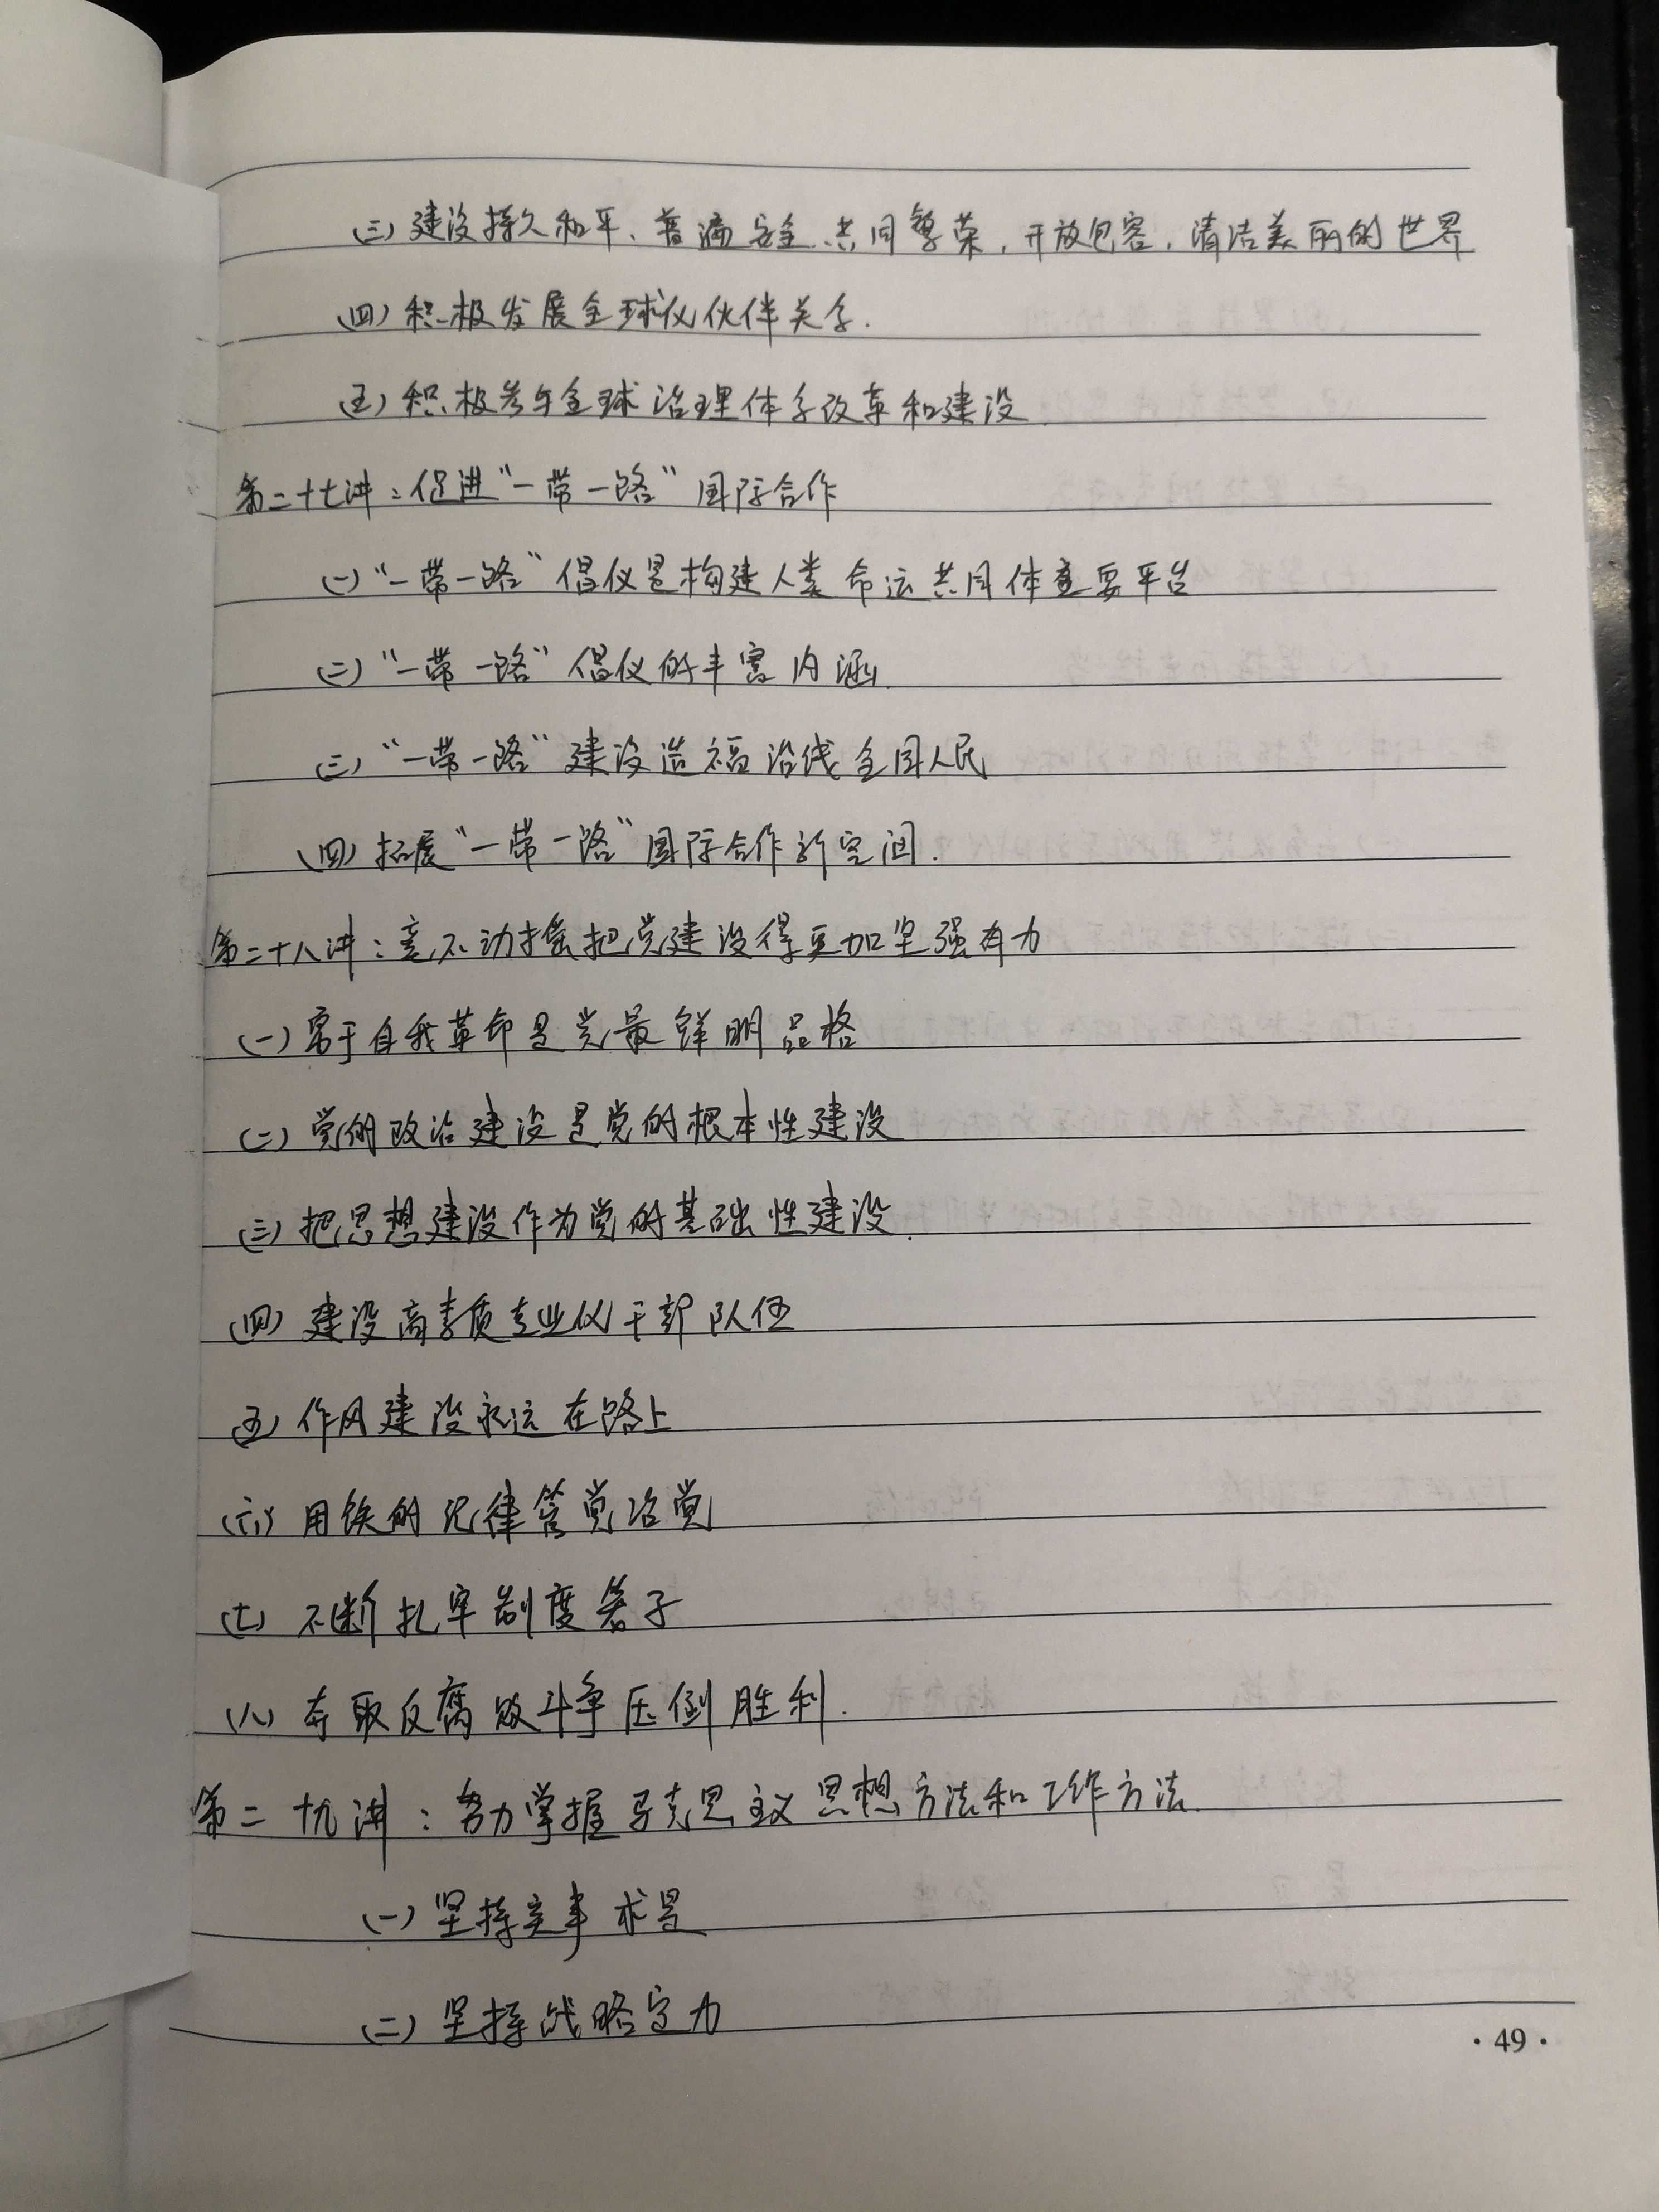 (三)建设持久和平、普遍安全、共同繁荣,开放包容,清洁美丽的世界
(四)积极发展全球化伙伴关系.
(五)积极参与全球治理体系改革和建设.
第二十七讲:促进“一带一路”国际合作
(一)“一带一路”倡仪是构建人类命运共同体重要平台
(二)“一带一路”倡仪的丰富内涵.
(三)“一带一路”建设造福沿线全国人民
(四)拓展“一带一路”国际合作新空间.
第二十八讲:毫不动摇把党建设得更加坚强有力
(一)富于自我革命是党最鲜明品格
(二)党的政治建设是党的根本性建设
(三)把思想建设作为党的基础性建设.
(四)建设高素质专业化干部队伍
(五)作风建设永远在路上
(六)用铁的纪律管党治党
(七)不断扎牢制度笼子
(八)夺取反腐败斗争压倒胜利.
第二十九讲:努力掌握马克思主义思想方法和工作方法.
(一)坚持实事求是
(二)坚持战略定力
·49·